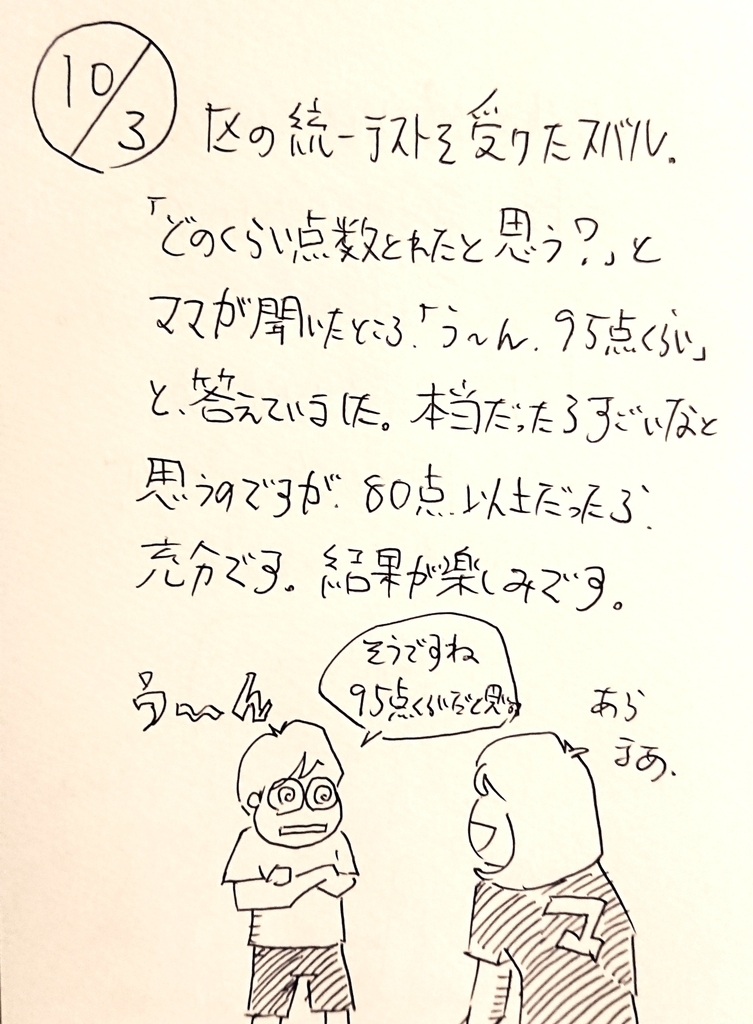 10/3
区の統一テストを受けたスバル。
「どのくらい点数とれたと思う?」と
ママが聞いたところ、「う〜ん、95点くらい」
と、答えていました。本当だったらすごいなと
思うのですが、80点以上だったら、
充分です。結果が楽しみです。
う〜ん
そうですね
95点くらいだと思う
あら
まあ、
マ